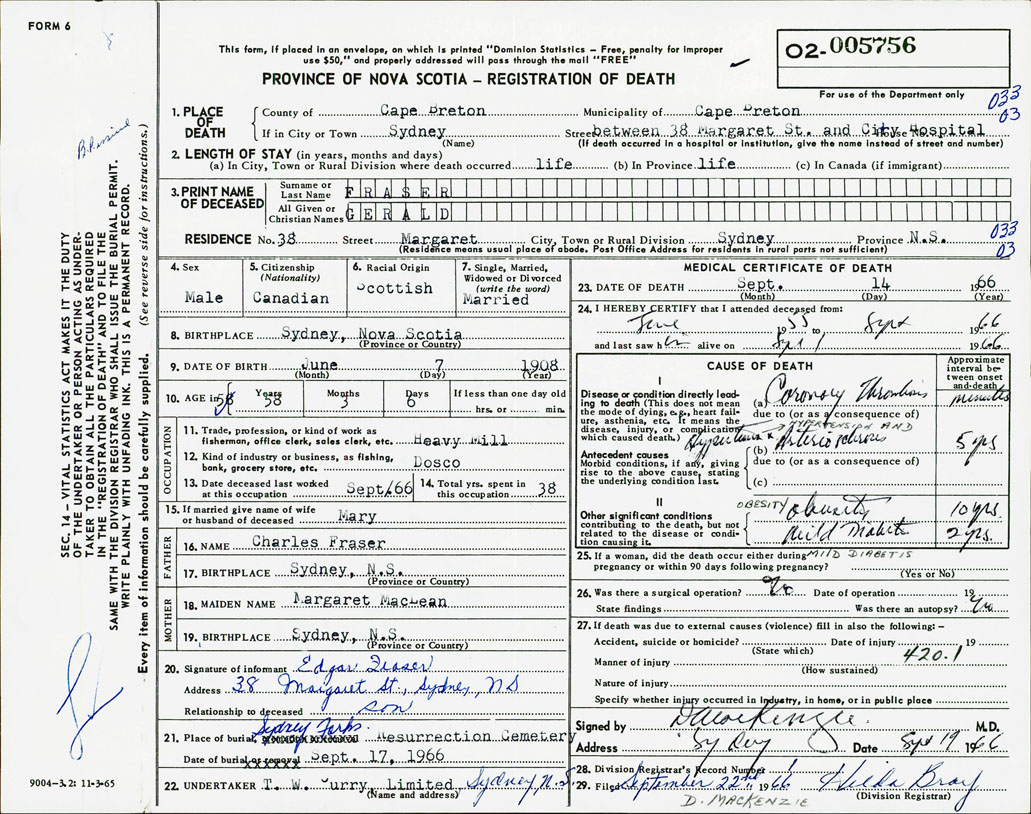 FORM 6
This form, if placed in an envelope, on which is printed "Dominion Statistics – Free, penalty for improper
use $50," and properly addressed will pass through the mail "FREE"
02-005756
PROVINCE OF NOVA SCOTIA – REGISTRATION OF DEATH
For use of the Department only
033
03
1. PLACE OF DEATH
County of Cape Breton Municipality of Cape Breton
If in City or Town Sydney Street between 38 Margaret St. and City Hospital
(Name) (If death occurred in a hospital or institution, give the name instead of street and number)
2. LENGTH OF STAY (in years, months and days)
(a) In City, Town or Rural Division where death occurred life (b) In Province life (c) In Canada (if immigrant)
3. PRINT NAME OF DECEASED
Surname or Last Name FRASER
All Given or Christian Names GERALD
033
03
RESIDENCE No. 38 Street Margaret City, Town or Rural Division Sydney Province N.S.
(Residence means usual place of abode. Post Office Address for residents in rural parts not sufficient)
4. Sex
Male
5. Citizenship
(Nationality)
Canadian
6. Racial Origin
Scottish
7. Single, Married,
Widowed or Divorced
(write the word)
Married
8. BIRTHPLACE Sydney, Nova Scotia
(Province or Country)
9. DATE OF BIRTH June 7 1908
(Month) (Day) (Year)
10. AGE in 58
Years 58
Months 3
Days 6
If less than one day old
hrs. or min.
OCCUPATION
11. Trade, profession, or kind of work as
fisherman, office clerk, sales clerk, etc. Heavy Mill
12. Kind of industry or business, as fishing,
bank, grocery store, etc. Dosco
13. Date deceased last worked
at this occupation Sept/66
14. Total yrs. spent in
this occupation 38
15. If married give name of wife
or husband of deceased Mary
FATHER
16. NAME Charles Fraser
17. BIRTHPLACE Sydney, N.S.
(Province or Country)
MOTHER
18. MAIDEN NAME Margaret MacLean
19. BIRTHPLACE Sydney, N.S.
(Province or Country)
20. Signature of informant Edgar Fraser
Address 38 Margaret St., Sydney, NS
Relationship to deceased son
Sydney Forks.
21. Place of burial, Resurrection Cemetery
Date of burial or removal Sept. 17, 1966
22. UNDERTAKER T. W. Curry, Limited Sydney N.S.
(Name and address)
MEDICAL CERTIFICATE OF DEATH
23. DATE OF DEATH Sept. 14 1966
(Month) (Day) (Year)
24. I HEREBY CERTIFY that I attended deceased from:
June 1955 to Sept 1966
and last saw him alive on Sept 1 1966
CAUSE OF DEATH
Approximate
interval between onset
and death
I
Disease or condition directly leading
to death (This does not mean
the mode of dying, e.g., heart failure,
asthenia, etc. It means the
disease, injury, or complication
which caused death.)
(a) Coronary Thrombosis minutes
due to (or as a consequence of)
HYPERTENSION AND
(b) Hypertension & Arteriosclerosis 5 yrs
due to (or as a consequence of)
(c)
Antecedent causes
Morbid conditions, if any, giving
rise to the above cause, stating
the underlying condition last.
II
Other significant conditions
contributing to the death, but not
related to the disease or condition
causing it.
OBESITY obesity 10 yrs.
mild Diabetis 2 yrs.
MILD DIABETIS
25. If a woman, did the death occur either during
pregnancy or within 90 days following pregnancy?
(Yes or No)
26. Was there a surgical operation? No Date of operation 19
State findings Was there an autopsy? No
27. If death was due to external causes (violence) fill in also the following:–
Accident, suicide or homicide? Date of injury 19
(State which)
420.1
Manner of injury
(How sustained)
Nature of injury
Specify whether injury occurred in industry, in home, or in public place
Signed by D MacKenzie M.D.
Address Sydney Date Sept 19 1966
28. Division Registrar's Record Number
29. Filed September 22nd 1966 Hilda Bray
(Division Registrar)
D. MACKENZIE
SEC. 14 – VITAL STATISTICS ACT MAKES IT THE DUTY
OF THE UNDERTAKER OR PERSON ACTING AS UNDERTAKER
TO OBTAIN ALL THE PARTICULARS REQUIRED
IN THE "REGISTRATION OF DEATH" AND TO FILE THE
SAME WITH THE DIVISION REGISTRAR WHO SHALL ISSUE THE BURIAL PERMIT.
WRITE PLAINLY WITH UNFADING INK. THIS IS A PERMANENT RECORD.
Every item of information should be carefully supplied. (See reverse side for instructions.)
9004–3.2: 11-3-65